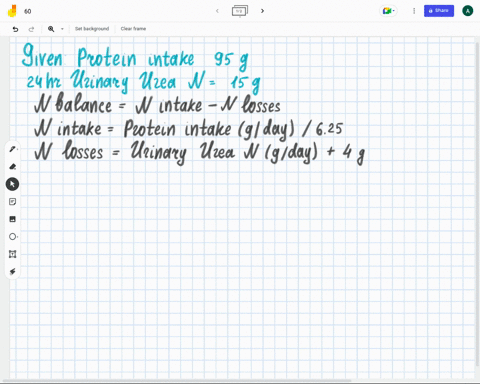 60
Set background
Clear frame
Share
A
Given Protein intake 95 g
24hr Urinary Urea N = 15 g
N balance = N intake - N losses
N intake = Protein intake (g/day) / 6.25
N losses = Urinary Urea N (g/day) + 4 g